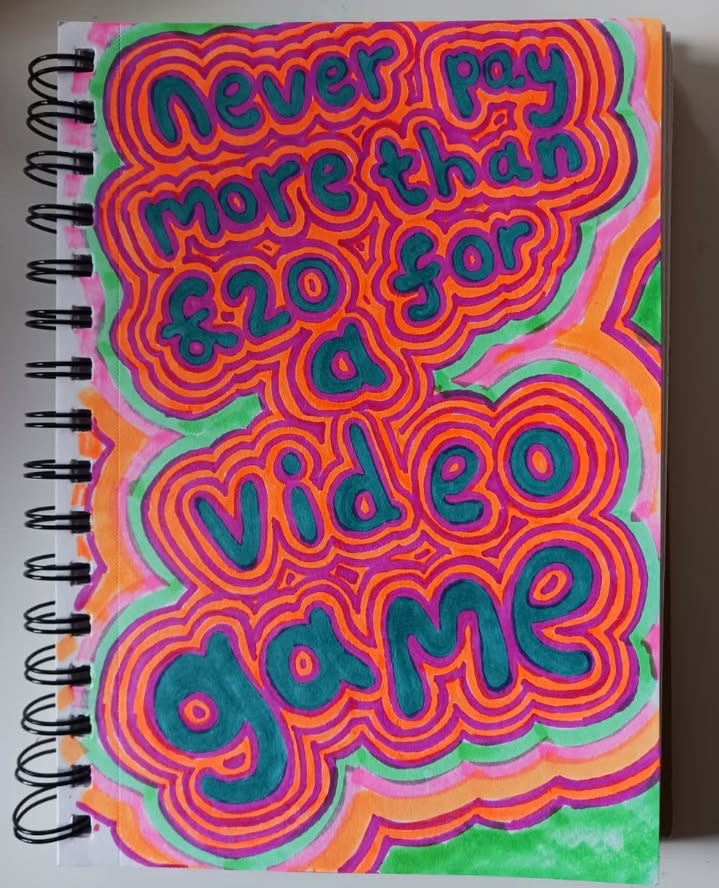 never pay
more than
£20 for
a
video
game